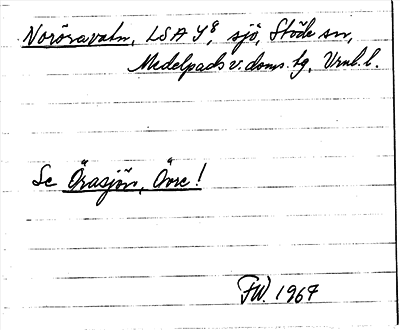 Noröravatn, LSA Y⁸, sjö, Stöde sn,
Medelpads v. doms. tg, Vrnl. l.
Se Örasjön, Övre!
FW. 1967